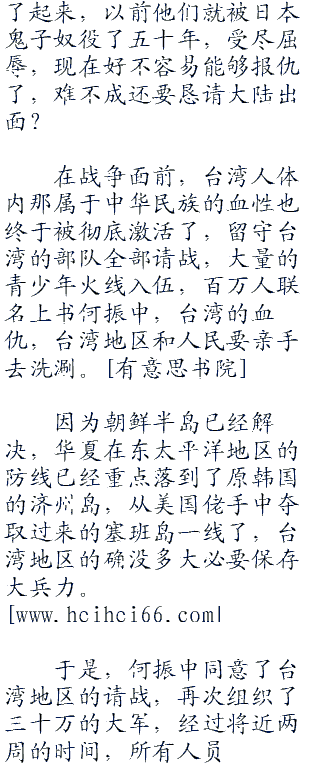 了起来，以前他们就被日本
鬼子奴役了五十年，受尽屈
辱，现在好不容易能够报仇
了，难不成还要恳请大陆出
面？
在战争面前，台湾人体
内那属于中华民族的血性也
终于被彻底激活了，留守台
湾的部队全部请战，大量的
青少年火线入伍，百万人联
名上书何振中，台湾的血
仇，台湾地区和人民要亲手
去洗涮。[有意思书院]
因为朝鲜半岛已经解
决，华夏在东太平洋地区的
防线已经重点落到了原韩国
的济州岛，从美国佬手中夺
取过来的塞班岛一线了，台
湾地区的确没多大必要保存
大兵力。
[www.hcihci66.com|
于是，何振中同意了台
湾地区的请战，再次组织了
三十万的大军，经过将近两
周的时间，所有人员